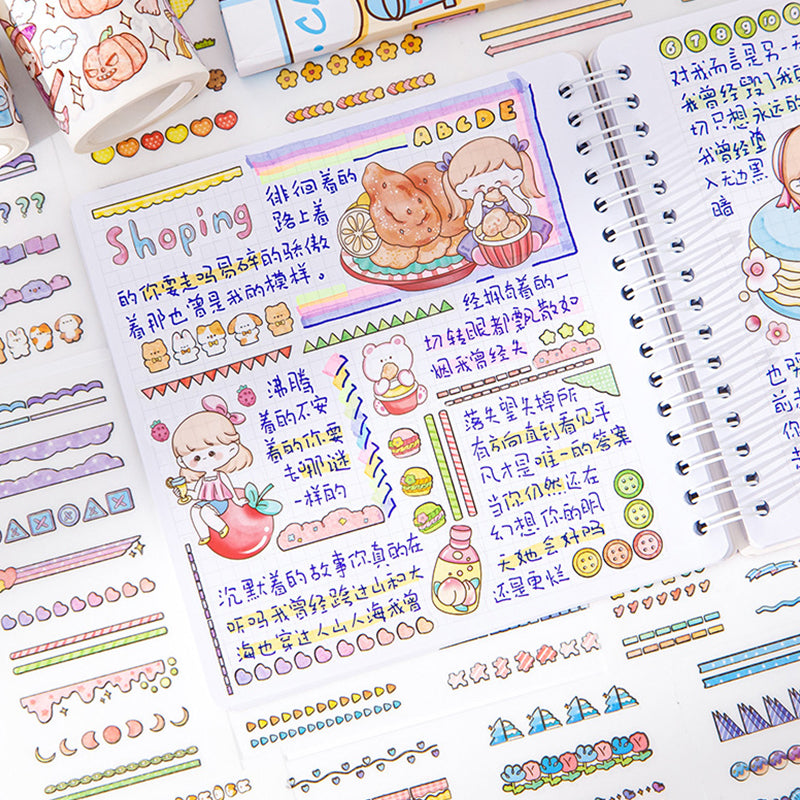 ABCDE
Shoping
徘徊着的
路上着
的你要走吗易碎的骄傲
着那也曾是我的模样。
沸腾
着的不安
着的你要
去哪谜
一样的
沉默着的故事你真的在
听吗我曾经跨过山和大
海也穿过人山人海我曾
经拥有着的一
切转眼都飘散如
烟我曾经失
落失望失掉所
有方向直到看见平
凡才是唯一的答案
当你仍然还在
幻想你的明
天她会好吗
还是更烂
6 7 8 9 10
对我而言是另一天
我曾经毁了我的
切只想永远的
我曾经堕
入无边黑
暗
也
前
你
去